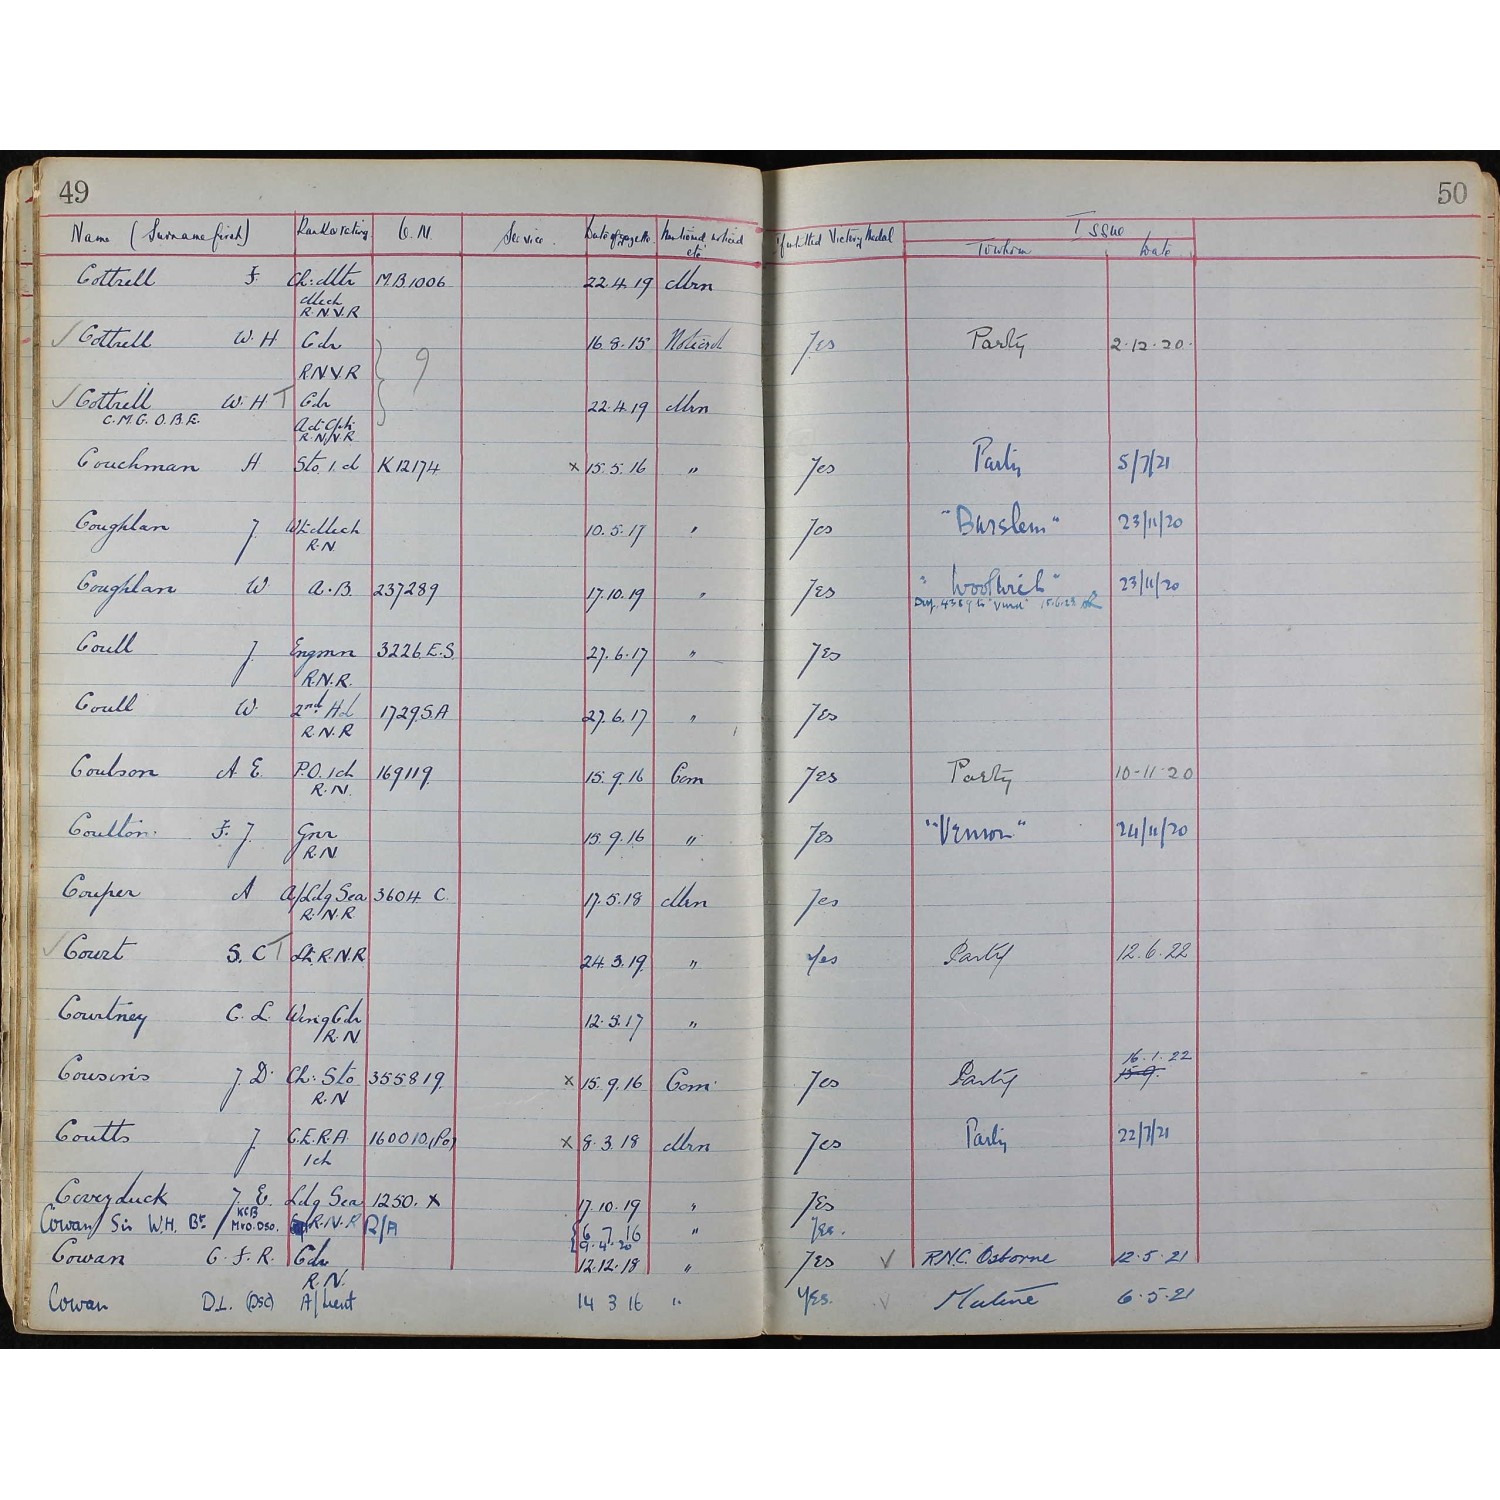 49
50
Name (Surname first) Rank or rating O.N. Service Date of gazette Mentioned, noticed etc If entitled Victory Medal Issue
To whom Date
Cottrell F. Ch: Mtr M.B.1006 22.4.19 Mn
Mech
R.N.V.R
Cottrell W.H Cdr 16.8.15 Noticed Yes Party 2.12.20.
R.N.V.R
Cottrell W.H T Cdr 22.4.19 Mn
C.M.G. O.B.E. Act Capt
R.N.V.R
Couchman H Sto. 1.cl K12174 x 15.5.16 " Yes Party 5/7/21
Coughlan J. Wt Mech 10.5.17 " Yes "Burslem" 23/11/20
R.N.
Coughlan W A.B. 237289 17.10.19 " Yes "Woolwich" 23/11/20
Coull J. Engmn 3226.E.S. 27.6.17 " Yes
R.N.R.
Coull W. 2nd Hd 1729.S.A 27.6.17 " Yes
R.N.R
Coulson A E. P.O. 1cl 169119. 15.9.16 Com Yes Party 10-11-20
R.N.
Coulton. F. J Gnr 15.9.16 " Yes "Vernon" 24/11/20
R.N
Couper A A/Ldg Sea 3604 C. 17.5.18 Mn Yes
R.N.R
Court S. C T Lt. R.N.R. 24.3.19 " Yes Party 12.6.22
Courtney C. L. Wing Cdr 12.5.17 "
R.N.
16.1.22
Cousins J. D. Ch: Sto 355819. x 15.9.16 Com Yes Party 15-9.
R.N
Coutts J C.E.R.A. 160010.(Po) x 8.3.18 Mn Yes Party 22/7/21
1cl
Coveyduck J. E. Ldg Sea 1250. x 17.10.19 " Yes
Cowan Sir W.H. Bt. KCB MVO. DSO. R.N.V.R R/A 6 7 16 " Yes.
9.4.20
Cowan C. F. R. Cdr 12.12.18 " Yes R.N.C. Osborne 12.5.21
R.N.
Cowan D.L. (DSC) A/Lieut 14 3 16 " Yes. 6.5.21